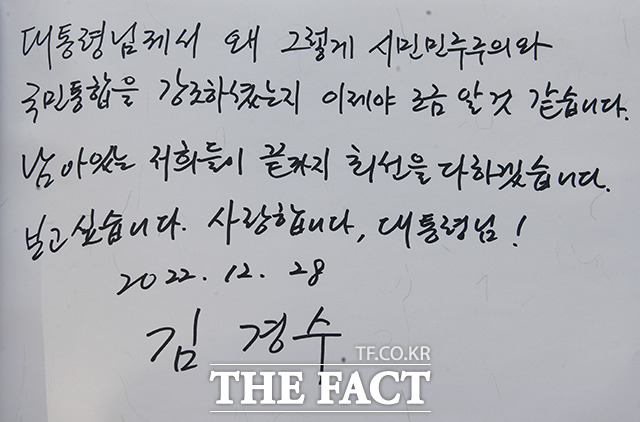 대통령님께서 왜 그렇게 시민민주주의와
국민통합을 강조하셨는지 이제야 조금 알 것 같습니다.
남아있는 저희들이 끝까지 최선을 다하겠습니다.
보고싶습니다. 사랑합니다, 대통령님!
2022. 12. 28
김 경수
TF.CO.KR
THE FACT